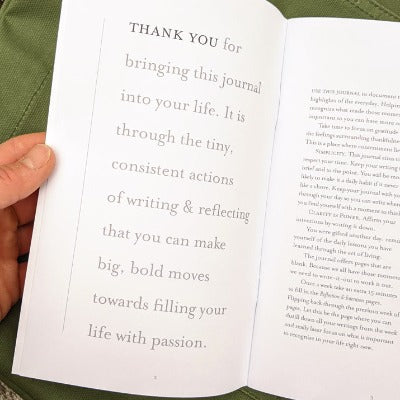 THANK YOU for
bringing this journal
into your life. It is
through the tiny,
consistent actions
of writing & reflecting
that you can make
big, bold moves
towards filling your
life with passion.
USE THIS JOURNAL to document t
highlights of the everyday. Helpin
recognize what made those momen
important so you can have more o
Take time to focus on gratitude
the feelings surrounding thankfulne
This is a place where contentment li
SIMPLICITY. This journal aims t
respect your time. Keep your writing
brief and to the point. You will be mo
likely to make it a daily habit if it neve
like a chore. Keep your journal with yo
through your day so you can write when
you find yourself with a moment to thin
CLARITY is POWER. Affirm your
intentions by writing it down.
You were gifted another day. remin
yourself of the daily lessons you have
learned through the art of living.
The journal offers pages that are
blank. Because we all have those momen
we need to write-it-out to work it out.
Once a week take an extra 15 minutes
to fill in the Reflection & Intentions pages.
Flipping back through the previous week of
pages. Let this be the page where you can
distill down all your writings from the week
and really laser focus on what is important
to recognize in your life right now.